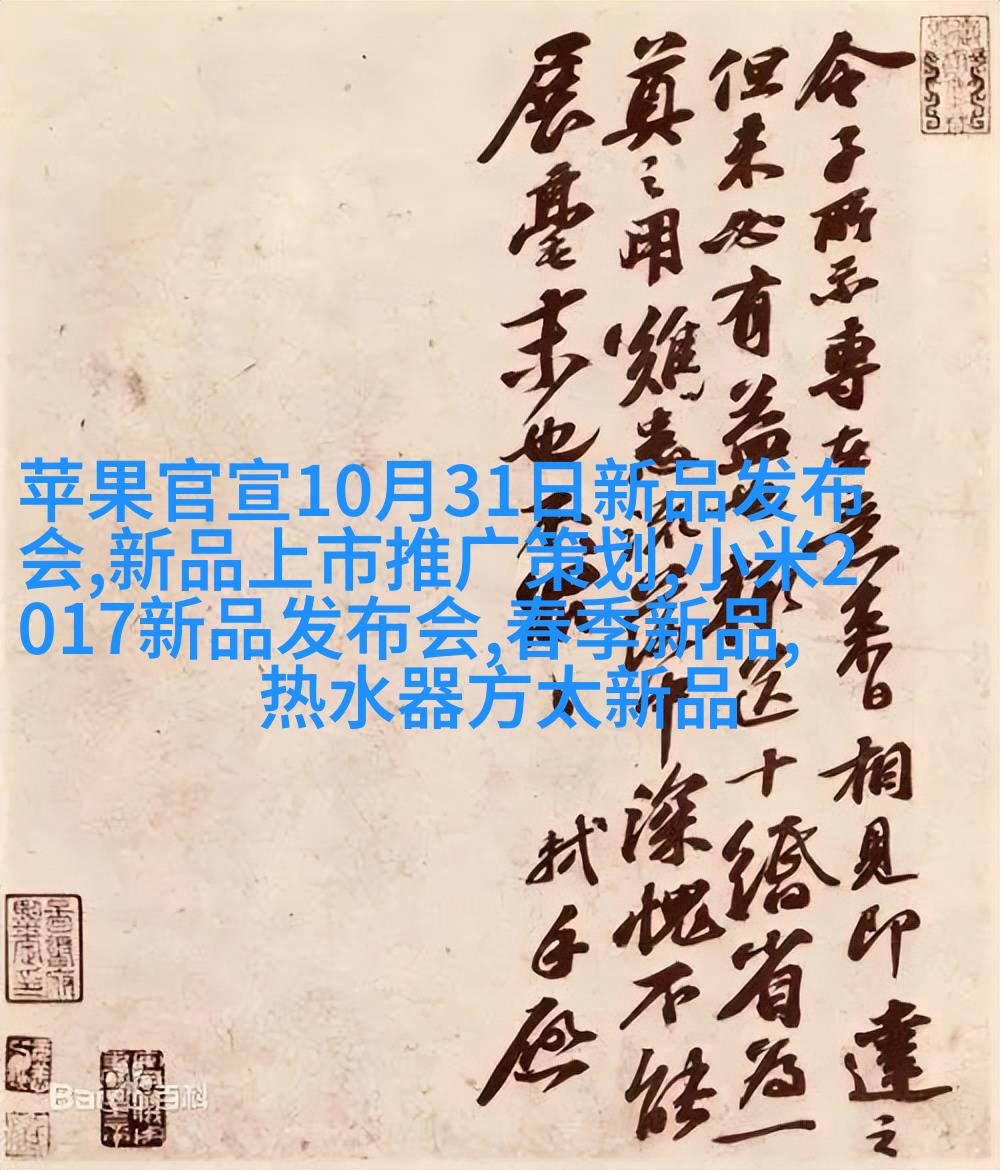 令子所示專在意來日相見即達之
但未必有益也輒送十縑省為一
奠之用雖悉深愧不能
展毫末也
軾手啟
苹果官宣10月31日新品发布
会,新品上市推广策划,小米2
017新品发布会,春季新品,
热水器方太新品
Bai百科